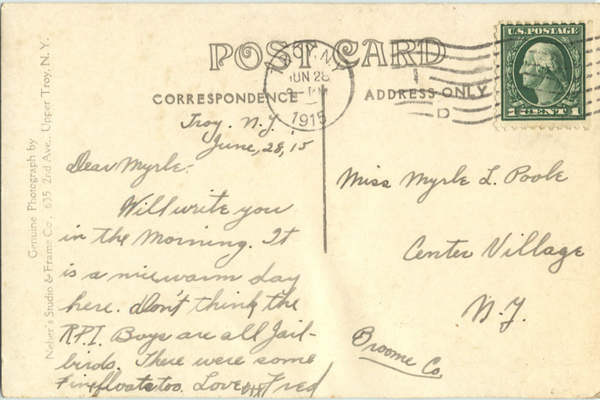 POST CARD
TROY, N.Y.
JUN 28
1915
D
U.S. POSTAGE
1 CENT 1
CORRESPONDENCE
ADDRESS ONLY
Genuine Photograph by
Neher's Studio & Frame Co., 635 2nd Ave., Upper Troy, N. Y.
Troy. N.Y.
June, 28, 15
Dear Myrle.
Will write you
in the Morning. It
is a nice warm day
here. Don't think the
R.P.I. Boys are all Jail-
birds. There were some
Fine floats too. Love Fred
Miss Myrle L. Poole
Center Village
N.Y.
Broome Co.